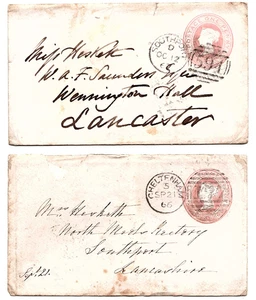 SOUTHPORT
D
OC 12
Miss Hesketh
W. A. F. Saunders Esqre
Wennington Hall
Lancaster
CHELTENHAM
5
SP 21
66
Mrs Hesketh
North Meols Rectory
Southport
Lancashire
Sept 21.